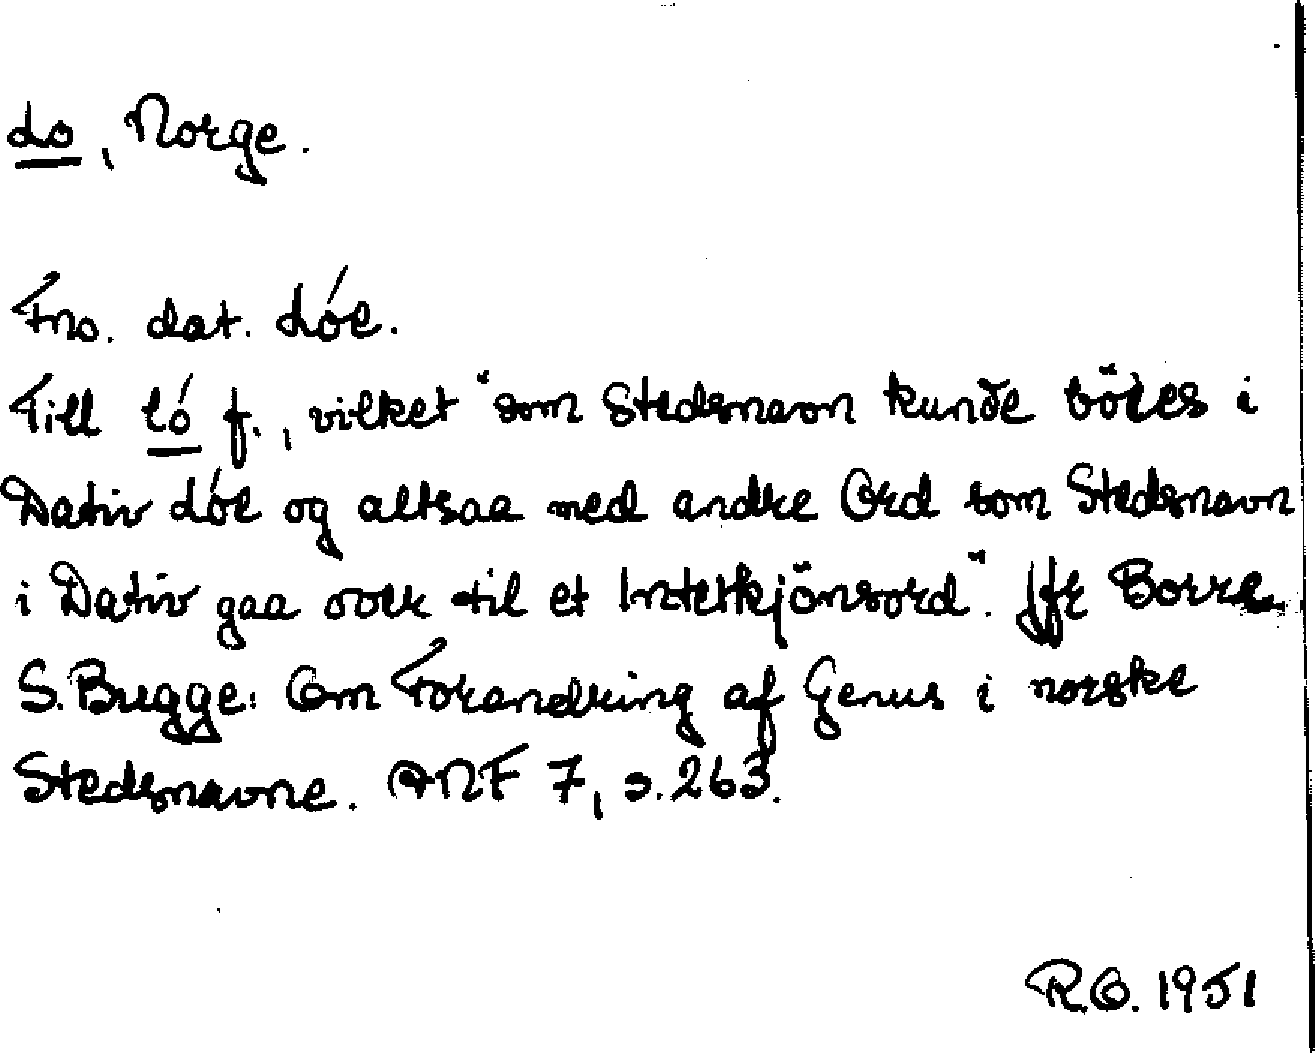 Lo, Norge.
Fno. dat. Lóe.
Till ló f., vilket "som Stedsnavn kunde böies i
Dativ Lóe og altsaa med andre Ord som Stedsnavn
i Dativ gaa over til et Intetkjönsord". Jfr Borre
S. Bugge: Om Forandring af Genus i norske
Stedsnavne. ANF 7, s. 263.
R.O. 1951